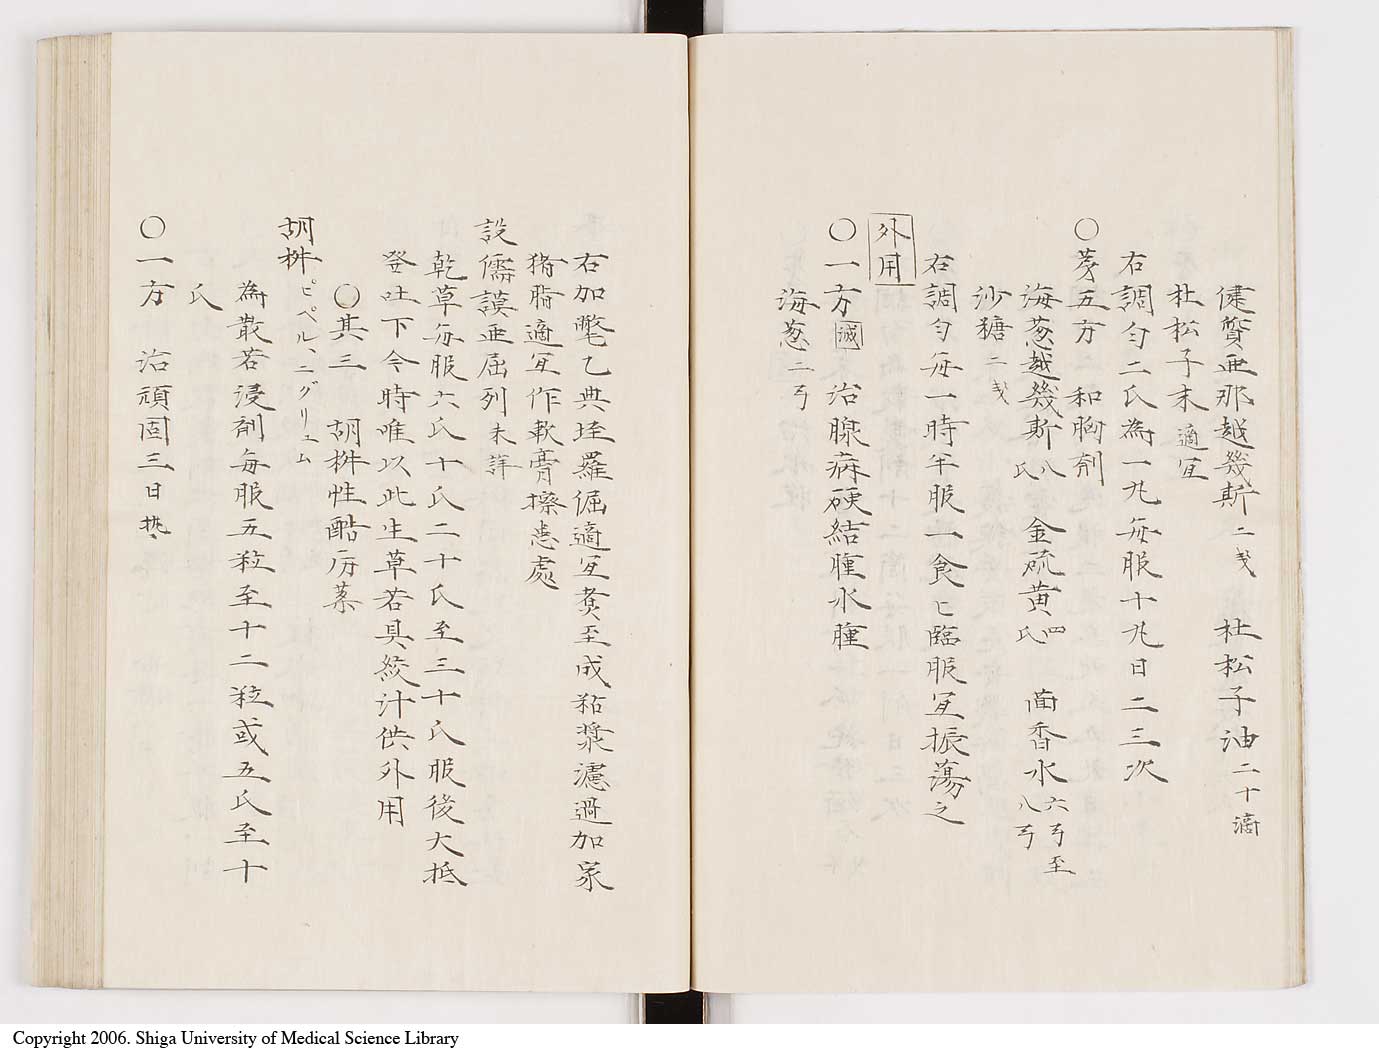 健質亜那越幾斯二戔 杜松子油二十滴
杜松子末適宜
右調匀二氏為一丸毎服十丸日二三次
〇第五方 和胸剤
海葱越幾斯八氏 金硫黄四氏 茴香水六弓至八弓
沙糖二戔
右調匀毎一時半服一食匕臨服宜振蕩之
外用
〇一方 治腺病硬結腫水腫
海葱二弓
右加鼈乙典垤羅倔適宜煮至成粘漿濾過加家
猪脂適宜作軟膏擦患處
設儒謨亜屈列未詳
乾草毎服六氏十氏二十氏至三十氏服後大抵
發吐下今時唯以此生草若具絞汁供外用
〇其三 胡椒性酷厉薬
胡椒ピペル、ニグリュム
為散若浸剤毎服五粒至十二粒或五氏至十
氏
〇一方 治頑固三日热
Copyright 2006. Shiga University of Medical Science Library